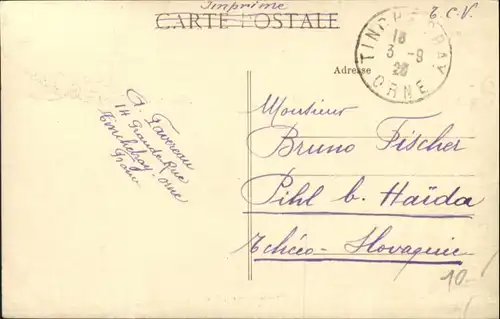 Imprimé
CARTE POSTALE
T.C.V.
TINCHEBRAY
18
3-9
23
ORNE
Adresse
Monsieur
Bruno Fischer
Pihl b. Haïda
Tchéco-Slovaquie
10.-
Favereau
14 Grande Rue
Tinchebray-Orne
France